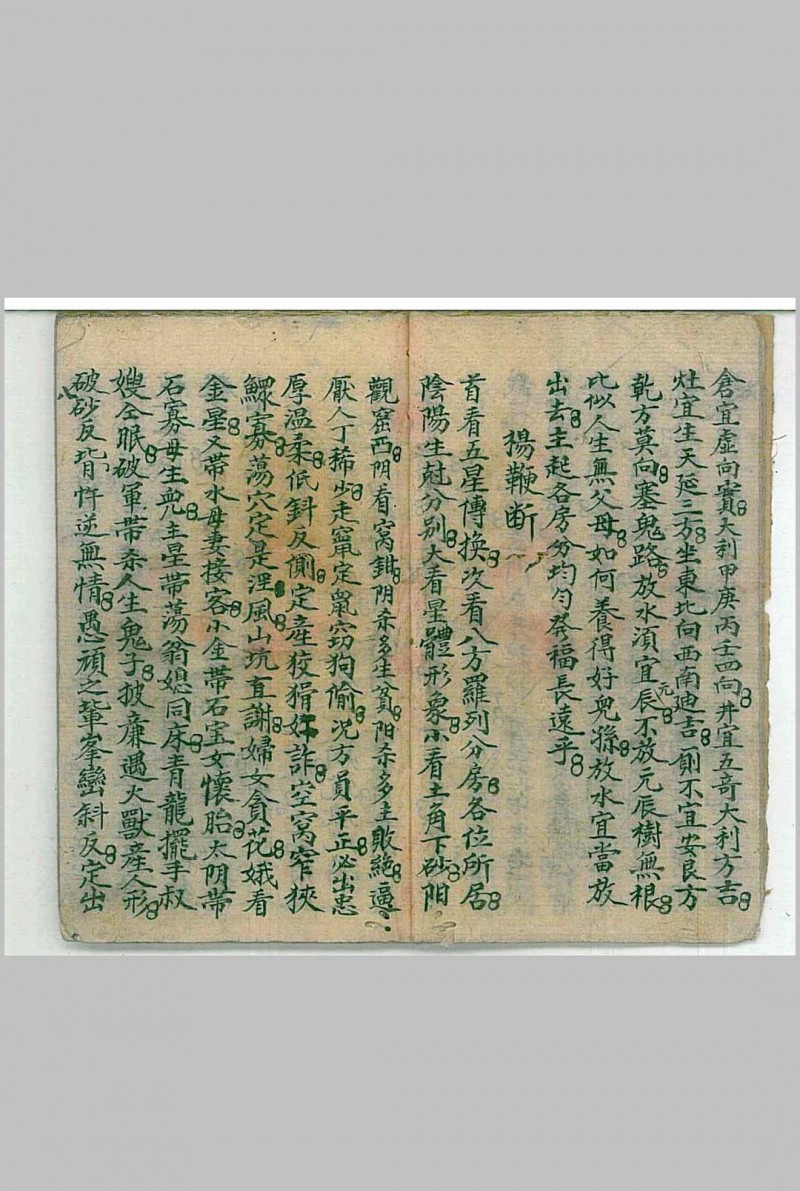 倉宜虛向實大利甲庚丙壬四向井宜五奇大利方吉
灶宜生天延三方坐東北向西南迪吉厠不宜安艮方
乾方莫向塞鬼路放水須宜辰元不放元辰樹無根
比似人生無父母如何養得好兒孫放水宜當放
出去主起各房分均勻發福長遠乎
楊鞭断
首看五星傳換次看八方羅列分房各位所居
陰陽生尅分別大看星體形象小看土角下砂阳
觀窑西阴看窝鉗阴杀多生貧阳杀多主敗絶逼
厭人丁稀少走竄定鼠窃狗偷况方員平正必出忠
厚温柔低斜反側定産狡猾奸詐空窝窄狹
鰥寡蕩穴定是淫風山坑直謝婦女貪花娥看
金星又帶水母妻接客小金帶石宝女懷胎太阴帶
石寡母生兜主星帶蕩翁媳同床青龍擺手叔
嫂仝眠破軍帶杀人生鬼子披亷遇火獸産人形
破砂反背忤逆無情愚頑之輩峯巒斜反定出